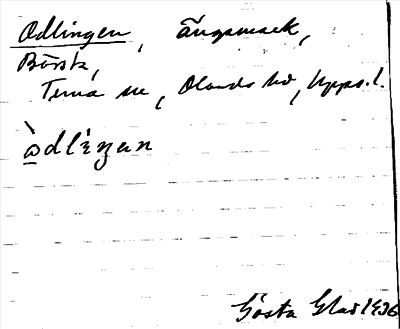 Odlingen, ängsmark,
Börsta,
Tuna sn, Olands hd, Upps. l.
òdlìŋan
Gösta Glad 1936